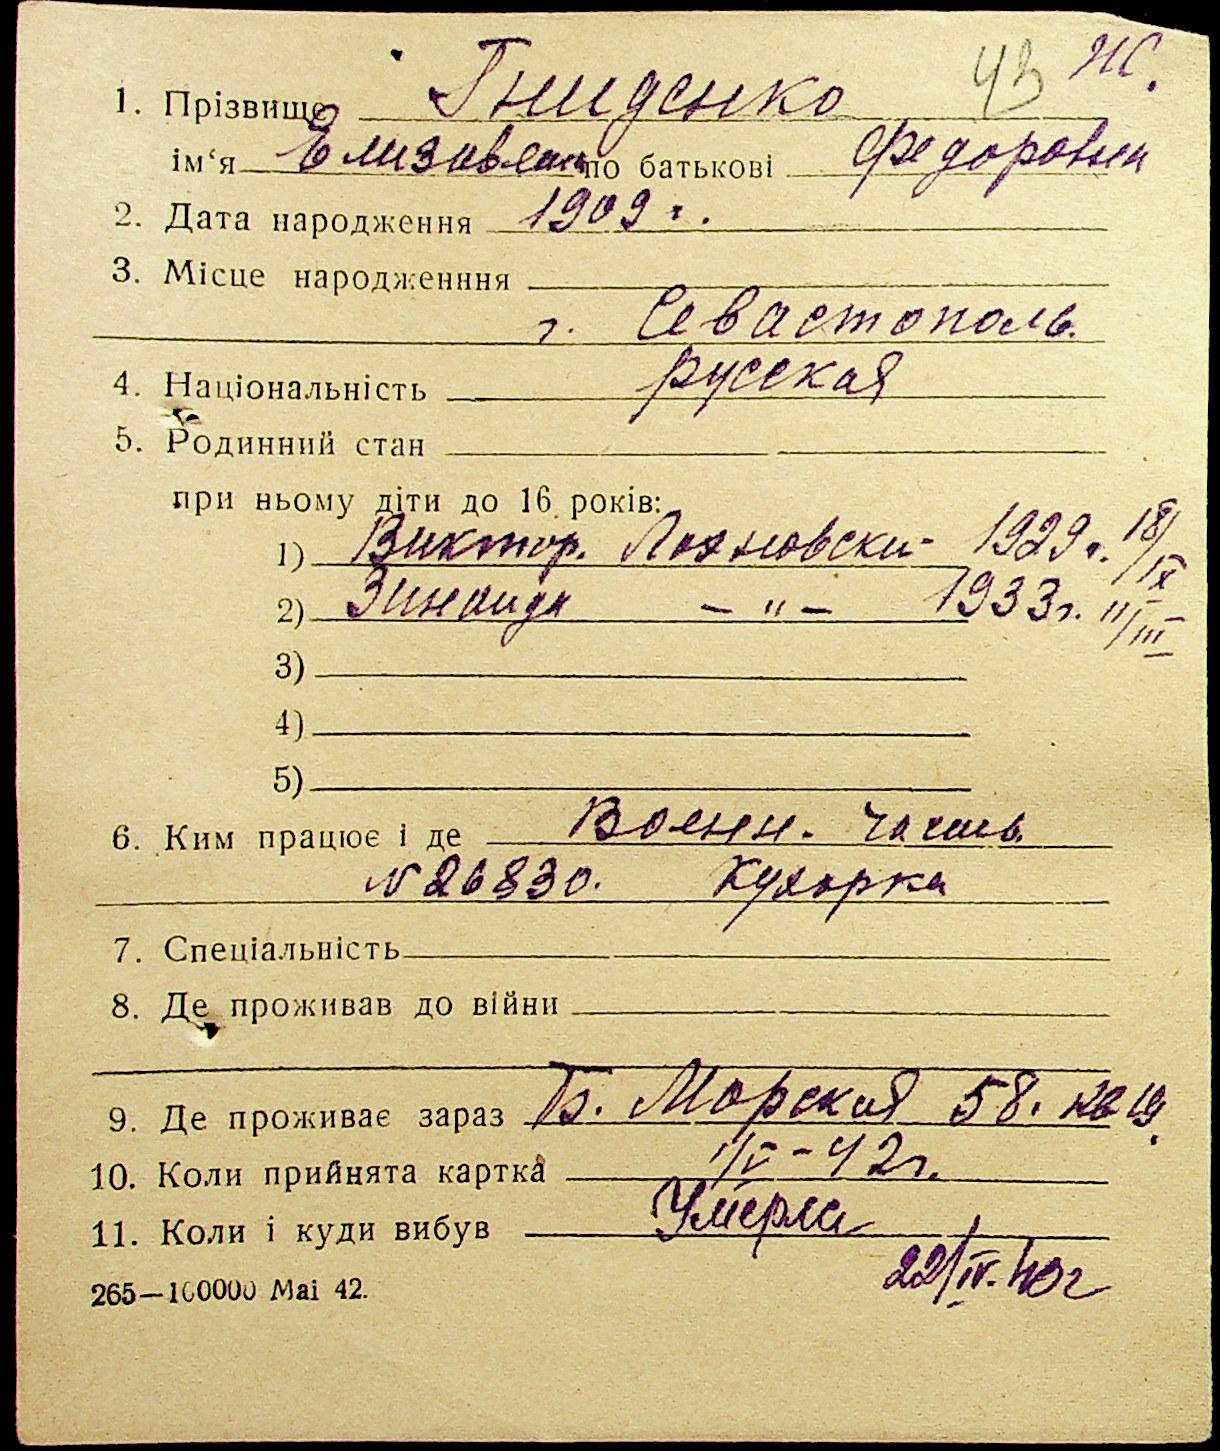 43 Ж.
1. Прізвище Гниденко
ім‘я Елизавета по батькові Федоровна
2. Дата народження 1909 г.
3. Місце народженння
г. Севастополь.
4. Національність русская
5. Родинний стан
при ньому діти до 16 років:
1) Виктор. 1929 г. 18/IX
2) Зинаида – " – 1933 г. 11/III
3)
4)
5)
6. Ким працює і де Воен. часть
N 26830. Кухарка
7. Спеціальність
8. Де проживав до війни
9. Де проживає зараз Б. Морская 58. кв 19.
10. Коли прийнята картка 1/V – 42 г.
11. Коли і куди вибув Умерла
22/IV. 43 г
265—100000 Mai 42.